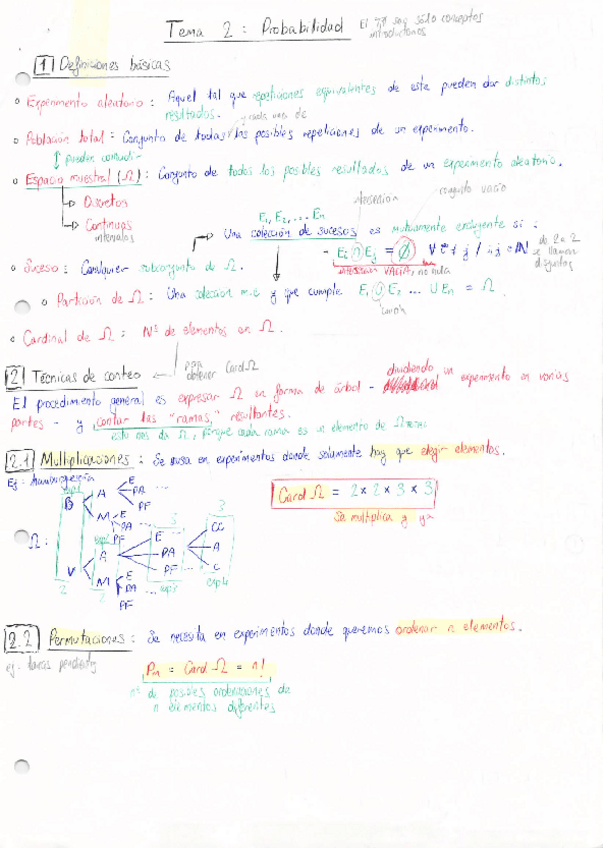 Tema 2 : Probabilidad
son sólo conceptos
introductorios
1 Definiciones básicas
Experimento aleatorio : Aquel tal que repeticiones equivalentes de este pueden dar distintos
resultados.
Población total : Conjunto de todas las posibles repeticiones de un experimento.
y cada una de
↕ pueden coincidir
Espacio muestral (Ω) : Conjunto de todos los posibles resultados de un experimento aleatorio.
Discretos
Continuos
intervalos
intersección
conjunto vacío
E1, E2, ... En
Una colección de sucesos es mutuamente excluyente si :
Ei ∩ Ej = ∅ ∀ i ≠ j / i, j ∈ N
de 2 a 2
se llaman
disjuntos
intersección VACÍA, no nula
Suceso : Cualquier subconjunto de Ω.
Partición de Ω : Una colección m.e y que cumple E1 ∪ E2 ... ∪ En = Ω.
unión
Cardinal de Ω : Nº de elementos en Ω.
2 Técnicas de conteo
para obtener Card Ω
El procedimiento general es expresar Ω en forma de árbol - dividiendo un experimento en varias
partes - y contar las "ramas" resultantes.
porque cada rama es un elemento de Ω
2.1 Multiplicaciones : Se usa en experimentos donde solamente hay que elegir elementos.
Ej : hamburguesería
Card Ω = 2 × 2 × 3 × 3
Se multiplica y ya
B A E PA PF
M E PA PF
Ω :
V A E PA PF
M E PA PF
CC
A
C
2 2 3 3
exp3 exp4
2.2 Permutaciones : Se necesita en experimentos donde queremos ordenar n elementos.
ej : tareas pendientes
Pn = Card Ω = n!
nº de posibles ordenaciones de
n elementos diferentes